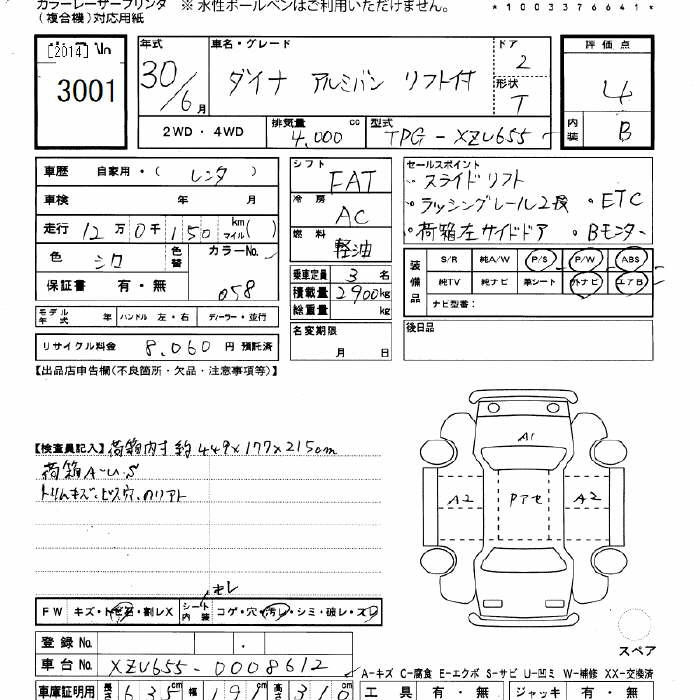 カラーレーザープリンタ ※ 水性ボールペンはご利用いただけません。
(複合機)対応用紙
*1003376641*
[2014] No
3001
年式 30/6月
車名・グレード ダイナ アルミバン リフト付
ドア 2
形状 T
評価点 4
内装 B
2WD・4WD
排気量 4.000 cc
型式 TPG-XZU655
車歴 自家用・(レンタ)
車検 年 月
走行 12万0千150 km マイル( )
色 シロ 色替 カラーNo. 058
保証書 有・無
シフト FAT
冷房 AC
燃料 軽油
乗車定員 3名
積載量 2900kg
総重量 kg
名変期限 月 日
セールスポイント
・スライドリフト
・ラッシングレール2段 ・ETC
・荷箱左サイドドア ・Bモニター
装備品 S/R 純A/W P/S P/W ABS
純TV 純ナビ 革シート 外ナビ エアB
ナビ型番:
後日品
モデル年式 年 ハンドル 左・右 ディーラー・並行
リサイクル料金 8,060 円 預託済
【出品店申告欄(不良箇所・欠品・注意事項等)】
【検査員記入】荷箱内寸約449×177×215cm
荷箱A-U.S
トリムキズ、ビス穴、のリアト
A1
A2 Pアセ A2
スレ
FW キズ・ト石・割レX シート内装 コゲ・穴・汚レ・シミ・破レ・スレ
スペア
登録No.
車台No. XZU655-0008612
A-キズ C-腐食 E-エクボ S-サビ U-凹ミ W-補修 XX-交換済
車庫証明用 長さ 635cm 幅 191cm 高さ 310cm
工具 有・無 ジャッキ 有・無